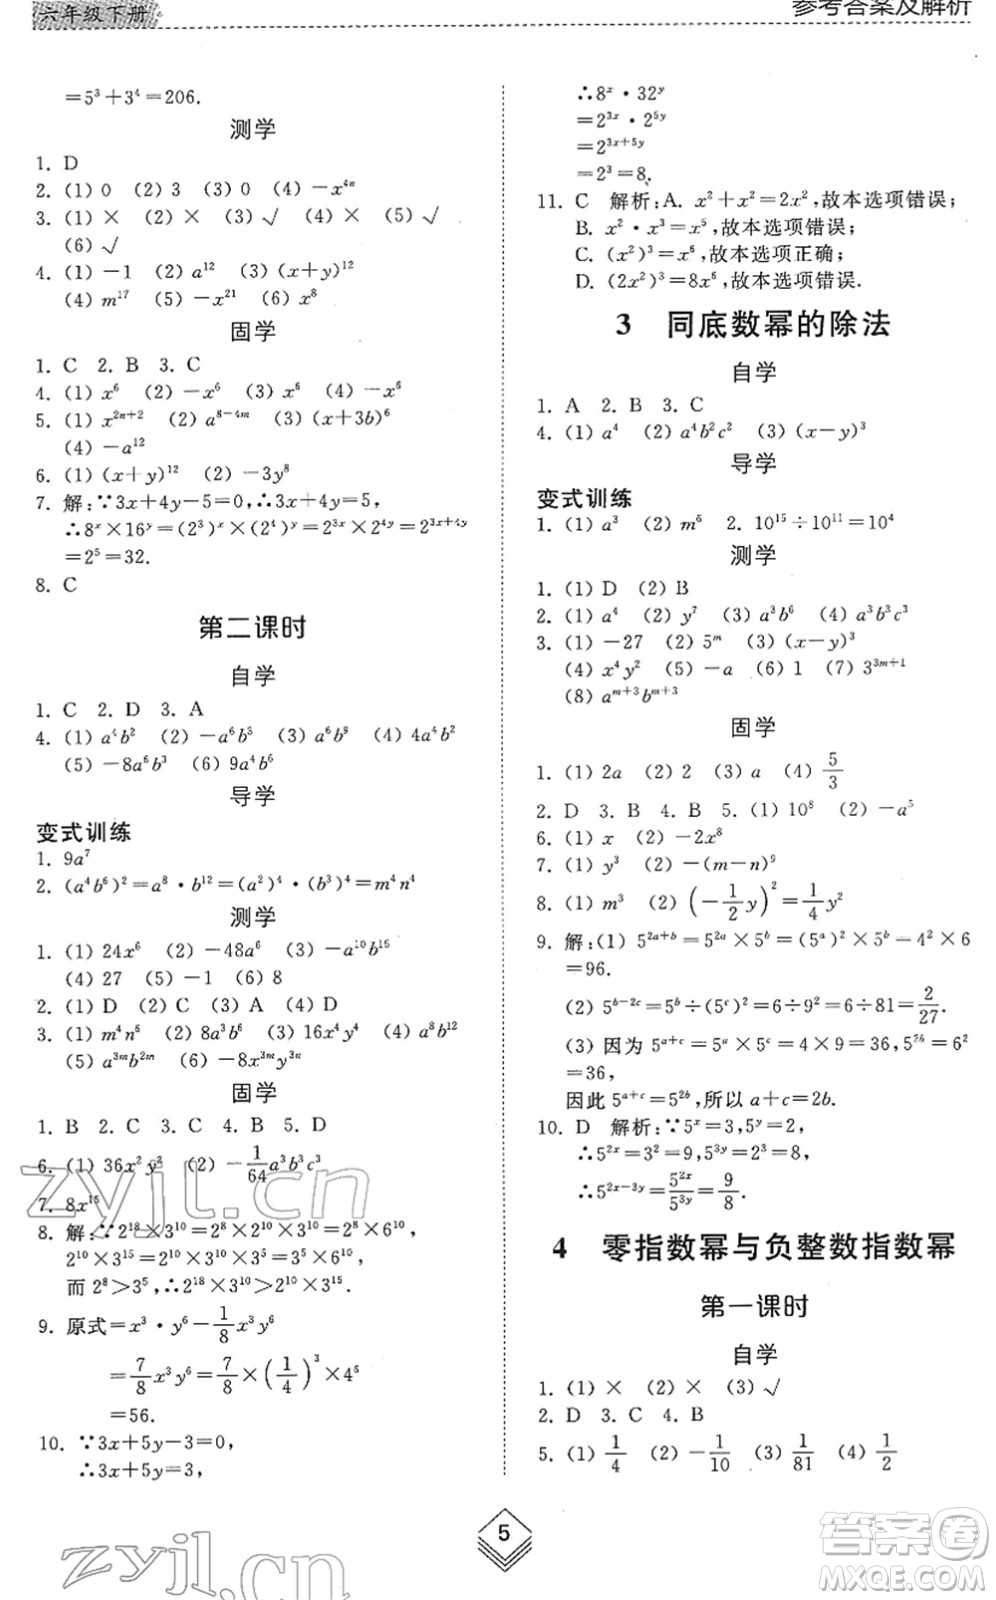 六年级下册
参考答案及解析
=5³+3⁴=206.
测学
1. D
2. (1) 0 (2) 3 (3) 0 (4) －x⁴ⁿ
3. (1) × (2) × (3) √ (4) × (5) √
(6) √
4. (1) －1 (2) a¹² (3) (x＋y)¹²
(4) m¹⁷ (5) －x²¹ (6) x⁸
固学
1. C 2. B 3. C
4. (1) x⁶ (2) －x⁶ (3) x⁶ (4) －x⁶
5. (1) x²ⁿ⁺² (2) a⁸⁻⁴ᵐ (3) (x＋3b)⁶
(4) －a¹²
6. (1) (x＋y)¹² (2) －3y⁸
7. 解:∵3x＋4y－5=0,∴3x＋4y=5,
∴8ˣ×16ʸ=(2³)ˣ×(2⁴)ʸ=2³ˣ×2⁴ʸ=2³ˣ⁺⁴ʸ
=2⁵=32.
8. C
第二课时
自学
1. C 2. D 3. A
4. (1) a⁴b² (2) －a⁶b⁵ (3) a⁶b⁹ (4) 4a⁴b²
(5) －8a⁶b³ (6) 9a⁴b⁶
导学
变式训练
1. 9a⁷
2. (a⁴b⁶)²=a⁸·b¹²=(a²)⁴·(b³)⁴=m⁴n⁴
测学
1. (1) 24x⁶ (2) －48a⁶ (3) －a¹⁰b¹⁵
(4) 27 (5) －1 (6) 8
2. (1) D (2) C (3) A (4) D
3. (1) m⁴n⁶ (2) 8a³b⁶ (3) 16x⁴y⁴ (4) a⁸b¹²
(5) a³ᵐb²ᵐ (6) －8x³ᵐy³ⁿ
固学
1. B 2. C 3. C 4. B 5. D
6. (1) 36x²y² (2) －1/64 a³b³c³
7. 8x¹⁵
8. 解:∵2¹⁸×3¹⁰=2⁸×2¹⁰×3¹⁰=2⁸×6¹⁰,
2¹⁰×3¹⁵=2¹⁰×3¹⁰×3⁵=3⁵×6¹⁰,
而 2⁸>3⁵,∴2¹⁸×3¹⁰>2¹⁰×3¹⁵.
9. 原式=x³·y⁶－1/8 x³y⁶
=7/8 x³y⁶=7/8×(1/4)³×4⁵
=56.
10. ∵3x＋5y－3=0,
∴3x＋5y=3,
∴8ˣ·32ʸ
=2³ˣ·2⁵ʸ
=2³ˣ⁺⁵ʸ
=2³=8.
11. C 解析:A. x²＋x²=2x²,故本选项错误;
B. x²·x³=x⁵,故本选项错误;
C. (x²)³=x⁶,故本选项正确;
D. (2x²)³=8x⁶,故本选项错误.
3 同底数幂的除法
自学
1. A 2. B 3. C
4. (1) a⁴ (2) a⁴b²c² (3) (x－y)³
导学
变式训练
1. (1) a³ (2) m⁶ 2. 10¹⁵÷10¹¹=10⁴
测学
1. (1) D (2) B
2. (1) a⁴ (2) y⁷ (3) a³b⁶ (4) a³b³c³
3. (1) －27 (2) 5ᵐ (3) (x－y)³
(4) x⁴y² (5) －a (6) 1 (7) 3³ᵐ⁺¹
(8) aᵐ⁺³bᵐ⁺³
固学
1. (1) 2a (2) 2 (3) a (4) 5/3
2. D 3. B 4. B 5. (1) 10⁸ (2) －a⁵
6. (1) x (2) －2x⁸
7. (1) y³ (2) －(m－n)⁹
8. (1) m³ (2) (－1/2 y)²=1/4 y²
9. 解:(1) 5²ᵃ⁺ᵇ=5²ᵃ×5ᵇ=(5ᵃ)²×5ᵇ－4²×6
=96.
(2) 5ᵇ⁻²ᶜ=5ᵇ÷(5ᶜ)²=6÷9²=6÷81=2/27.
(3) 因为 5ᵃ⁺ᶜ=5ᵃ×5ᶜ=4×9=36,5²ᵇ=6²
=36,
因此 5ᵃ⁺ᶜ=5²ᵇ,所以 a＋c=2b.
10. D 解析:∵5ˣ=3,5ʸ=2,
∴5²ˣ=3²=9,5³ʸ=2³=8,
∴5²ˣ⁻³ʸ=5²ˣ/5³ʸ=9/8.
4 零指数幂与负整数指数幂
第一课时
自学
1. (1) × (2) × (3) √
2. D 3. C 4. B
5. (1) 1/4 (2) －1/10 (3) 1/81 (4) 1/2
5
zyjl.cn
zyjl.cn
答案卷
MXQE.COM